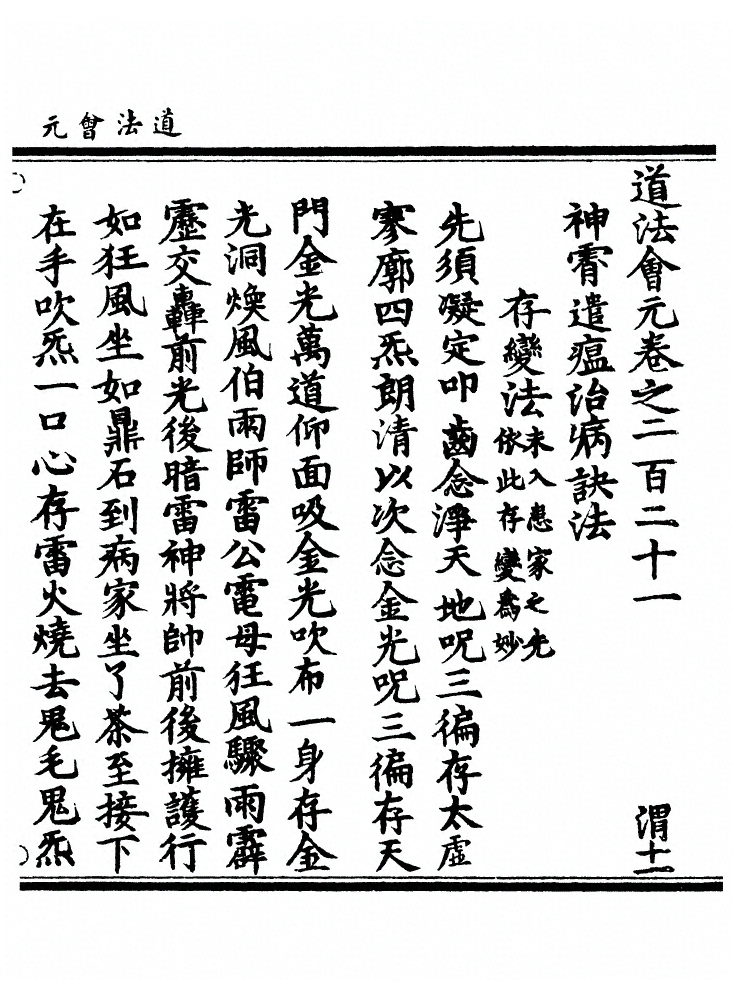 道法會元
道法會元卷之二百二十一　渭十一
神霄遣瘟治病訣法
存變法
未入患家之先
依此存變爲妙
先須凝定叩齒念淨天地呪三徧存太虛
寥廓四炁朗清以次念金光呪三徧存天
門金光萬道仰面吸金光吹布一身存金
光洞煥風伯雨師雷公電母狂風驟雨霹
靂交轟前光後暗雷神將帥前後擁護行
如狂風坐如鼎石到病家坐了茶至接下
在手吹炁一口心存雷火燒去鬼毛鬼炁